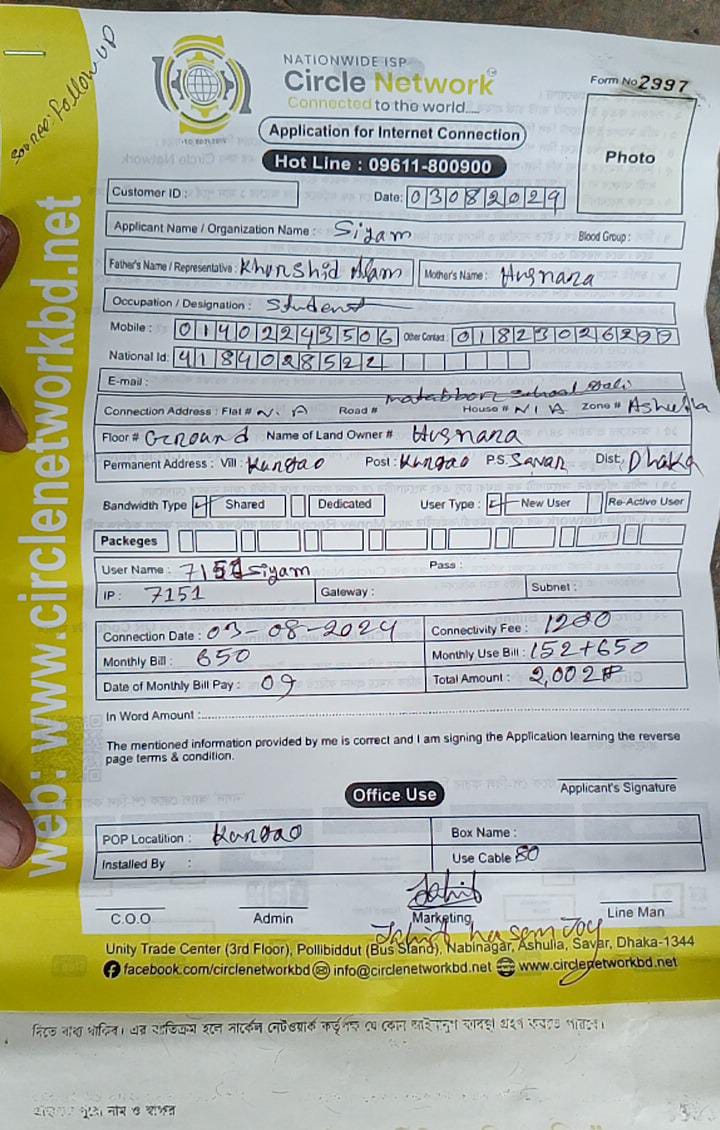 Source: Follow UP
NATIONWIDE ISP
Circle Network
Connected to the world....
Form No 2997
Application for Internet Connection
Hot Line : 09611-800900
Photo
Customer ID :
Date: 03082029
Applicant Name / Organization Name : Siyam
Blood Group :
Father's Name / Representative : Khurshid Alam Mother's Name : Husnara
Occupation / Designation : Student
Mobile : 01402243506 Other Contact : 01823026299
National Id: 4184028522
E-mail :
Connection Address : Flat # N.A Road # matabbor school Gali House # N/A Zone # Ashulia
Floor # Ground Name of Land Owner # Husnara
Permanent Address : Vill : Kungao Post : Kungao P.S. Savar Dist, Dhaka
Bandwidth Type Shared Dedicated User Type : New User Re-Active User
Packeges
User Name : 7151siyam Pass :
IP : 7151 Gateway : Subnet :
Connection Date : 03-08-2024 Connectivity Fee : 1200
Monthly Bill : 650 Monthly Use Bill : 152+650
Date of Monthly Bill Pay : 09 Total Amount : 2,002
In Word Amount :
The mentioned information provided by me is correct and I am signing the Application learning the reverse
page terms & condition.
Applicant's Signature
Office Use
POP Localition : Kungao Box Name :
Installed By : Use Cable 80
Jahid
C.O.O Admin Marketing Line Man
Jahid hasan Joy
Unity Trade Center (3rd Floor), Pollibiddut (Bus Stand), Nabinagar, Ashulia, Savar, Dhaka-1344
facebook.com/circlenetworkbd info@circlenetworkbd.net www.circlenetworkbd.net
web: www.circlenetworkbd.net
দিতে বাধ্য থাকিব। এর ব্যতিক্রম হলে সার্কেল নেটওয়ার্ক কর্তৃপক্ষ যে কোন আইনানুগ ব্যবস্থা গ্রহণ করতে পারবে।
নাম ও স্বাক্ষর